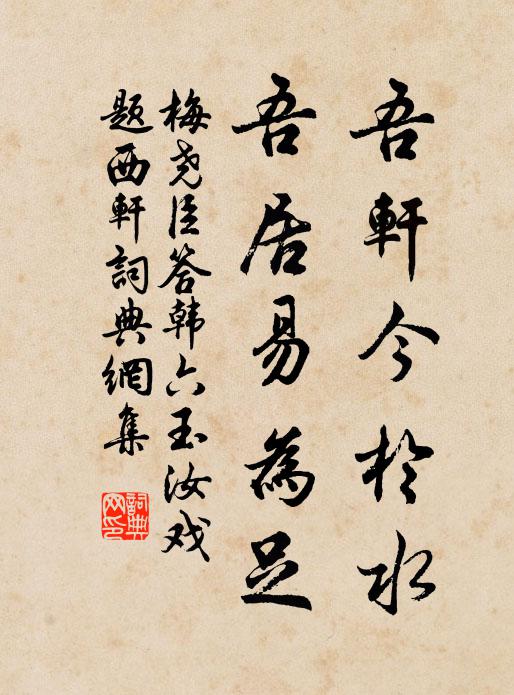 吾軒今於水
吾居易為足
梅尧臣答韩六玉汝戏
题西軒詞典網集
詞典网印